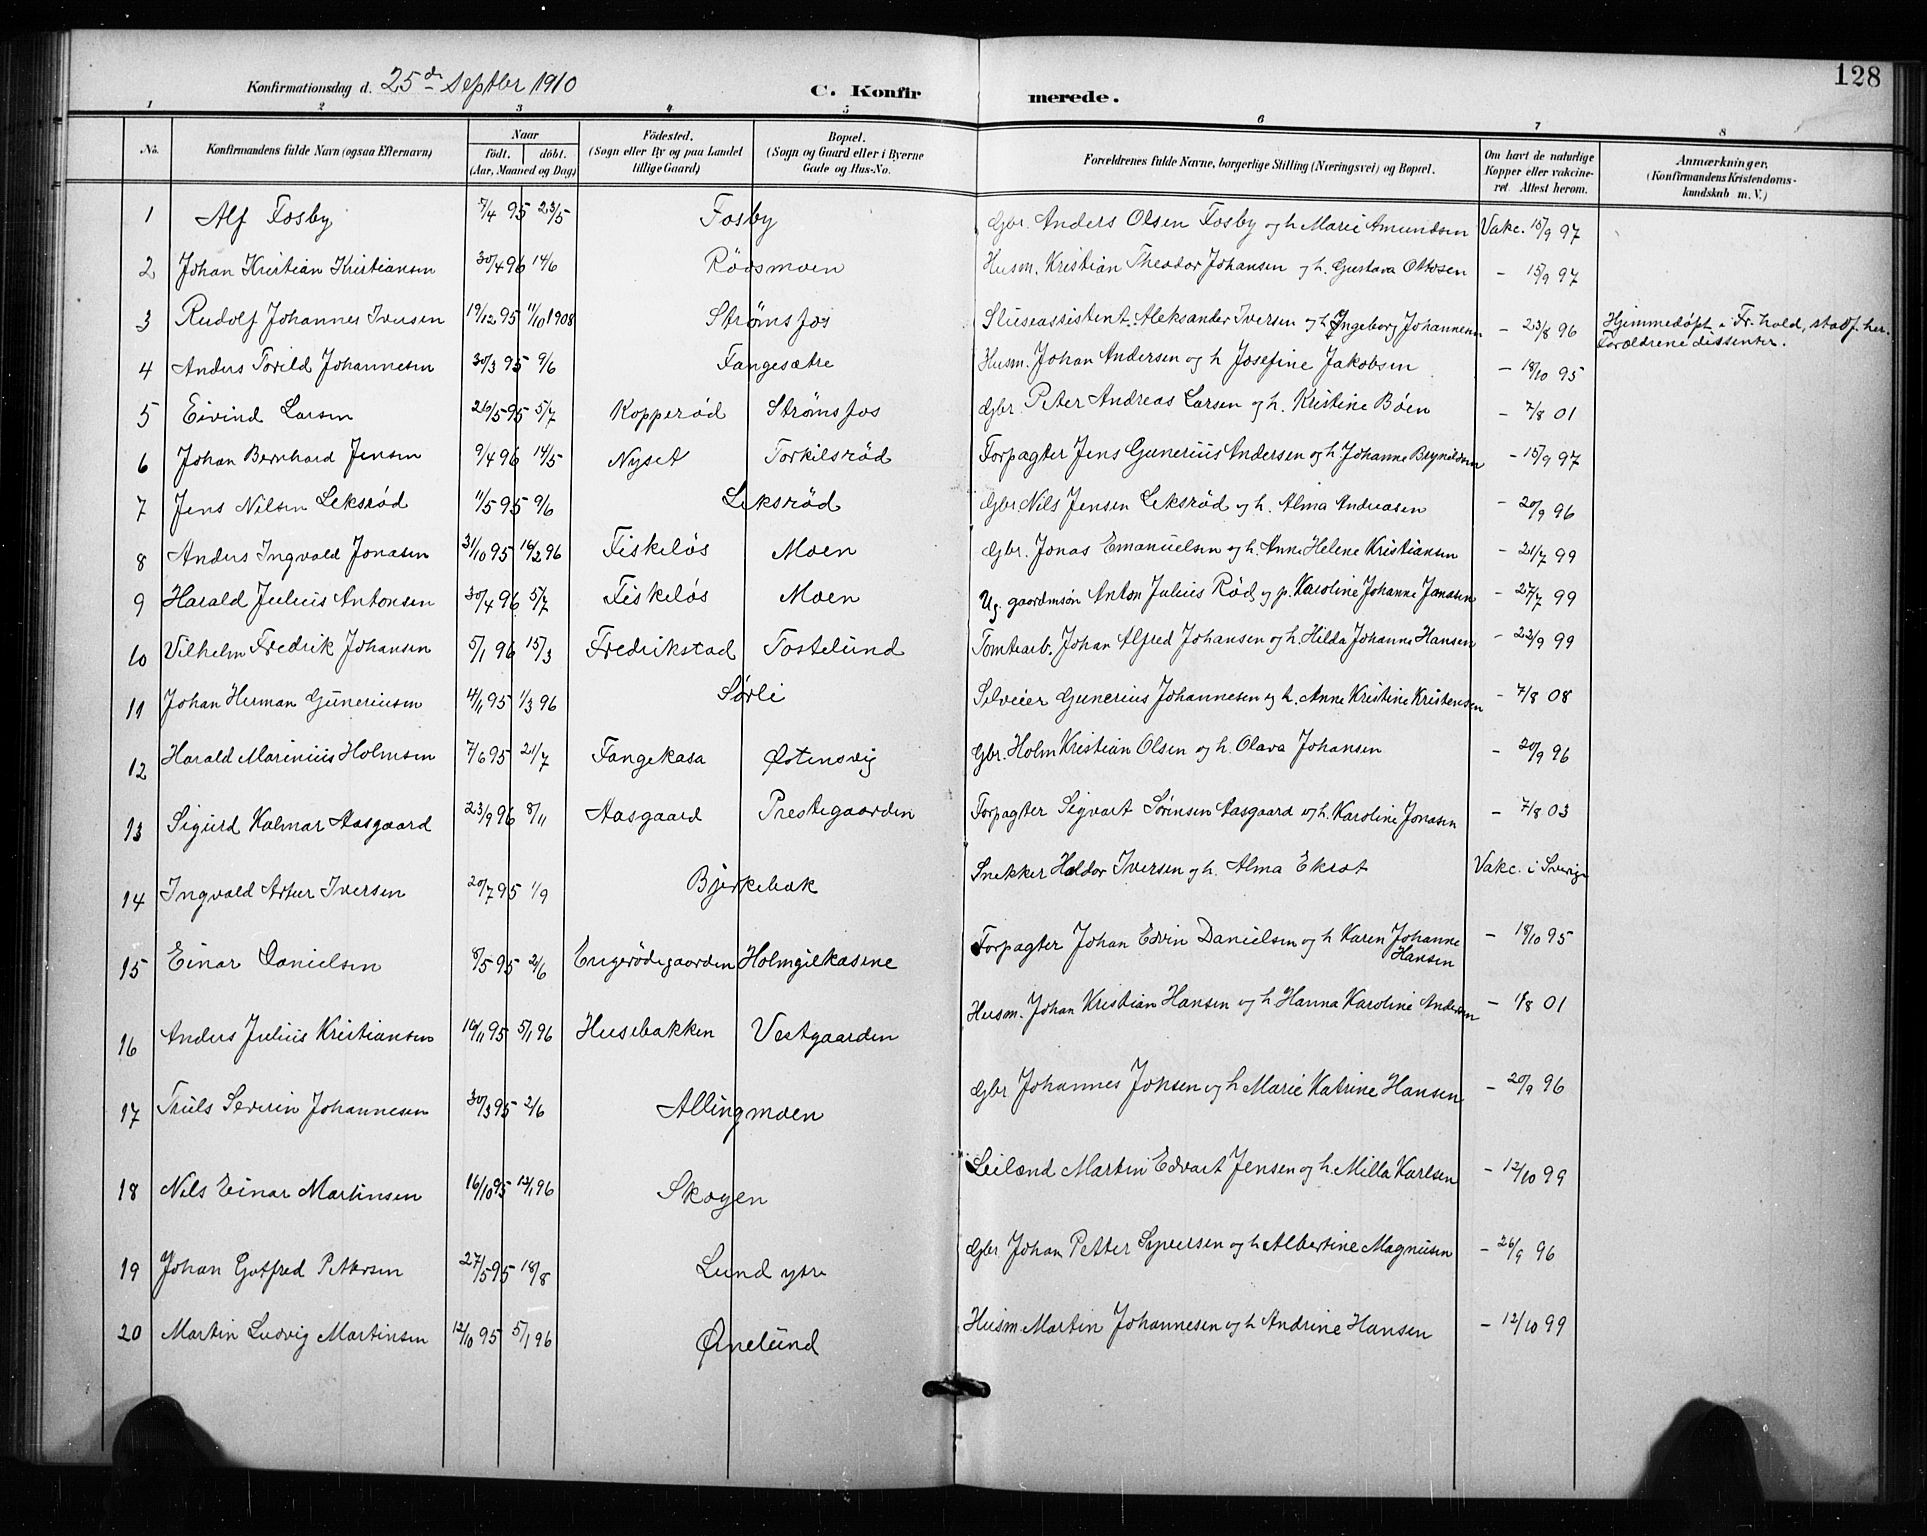 128
Konfirmationsdag d. 25de Septbr 1910 C. Konfirmerede.
1 2 3 4 5 6 7 8
No. Konfirmandens fulde Navn (ogsaa Efternavn) Naar født. døbt. (Aar, Maaned og Dag) Fødested. (Sogn eller By og paa Landet tillige Gaard) Bopæl. (Sogn og Gaard eller i Byerne Gade og Hus-No. Forældrenes fulde Navne, borgerlige Stilling (Næringsvei) og Bopæl. Om havt de naturlige Kopper eller vakcineret. Attest herom. Anmærkninger. (Konfirmandens Kristendomskundskab m. V.)
1 Alf Fosby 7/4 95 23/5 Fosby Gbr. Anders Olsen Fosby og h Marie Amundsen Vakc. 15/9 97
2 Johan Kristian Kristiansen 30/4 96 14/6 Rødsmoen Husm. Kristian Theodor Johansen og h. Gustava Ottosen - 15/9 97
3 Rudolf Johannes Iversen 19/12 95 11/10 1908 Strømsfos Sluseassistent Aleksander Iversen og h Ingeborg Johannesen - 23/8 96 Hjemmedøpt i Fr.hald, stadf. her. Forældrene dissenter.
4 Anders Torild Johannesen 30/3 95 9/6 Fangesætre Husm. Johan Andersen og h Josefine Jakobsen - 18/10 95
5 Eivind Larsen 26/5 95 5/7 Kopperød Strømsfos Gbr. Peter Andreas Larsen og h. Kristine Bøen - 7/8 01
6 Johan Bernhard Jensen 9/4 96 14/5 Nyset Torkilsrød Forpagter Jens Gunerius Andersen og h Johanne Brynildsen - 15/9 97
7 Jens Nilsen Leksrød 11/5 95 9/6 Leksrød Gbr Nils Jensen Leksrød og h. Alma Andreasen - 20/9 96
8 Anders Ingvald Jonasen 31/10 95 16/2 96 Fiskeløs Moen Gbr. Jonas Emanuelsen og h. Anne Helene Kristiansen - 21/7 99
9 Harald Julius Antonsen 30/4 96 5/7 Fiskeløs Moen Ug. gaardmsøn Anton Julius Rød og p. Karoline Johanne Jonasen - 27/7 99
10 Vilhelm Fredrik Johansen 5/1 96 15/3 Fredrikstad Tostelund Tomtearb. Johan Alfred Johansen og h. Hilda Johanne Hansen - 22/9 99
11 Johan Herman Guneriusen 4/11 95 1/3 96 Sørli Selveier Gunerius Johannesen og h. Anne Kristine Kristensen - 7/8 08
12 Harald Marinius Holmsen 7/6 95 21/7 Fangekasa Østensvig Gbr. Holm Kristian Olsen og h. Olava Johansen - 20/9 96
13 Sigurd Kalmar Aasgaard 23/9 96 8/11 Aasgaard Prestegaarden Forpagter Sigvart Sørensen Aasgaard og h. Karoline Jonasen - 7/8 03
14 Ingvald Artur Iversen 20/7 95 1/9 Bjerkebæk Snekker Haldor Iversen og h. Alma Ekrot Vakc. i Sverige
15 Einar Danielsen 8/5 95 2/6 Engerødegaarden Holmgilkasene Forpagter Johan Edvin Danielsen og h Karen Johanne Hansen - 18/10 95
16 Anders Julius Kristiansen 16/11 95 5/1 96 Husebakken Vestgaarden Husm. Johan Kristian Hansen og h Hanna Karoline Andersen - 1/8 01
17 Truls Severin Johannesen 30/3 95 2/6 Allingmoen Gbr Johannes Jonsen og h Marie Katrine Hansen - 20/9 96
18 Nils Einar Martinsen 16/10 95 12/1 96 Skogen Leilænd Martin Edvart Jensen og h. Milla Karlsen - 12/10 99
19 Johan Gotfred Pettersen 27/5 95 18/8 Lund ytre Gbr Johan Petter Syversen og h Albertine Magnusen - 26/9 96
20 Martin Ludvig Martinsen 12/10 95 5/1 96 Ørnelund Husm. Martin Johannesen og h Andrine Hansen - 12/10 99